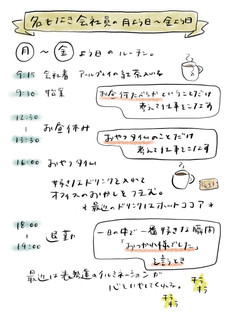 名もなき会社員の月よう日〜金よう日
月 〜 金 よう日のルーティン。
9:15 会社着 アールグレイの紅茶入れる
9:30 始業
お昼何たべようかということだけ
考えて仕事をこなす
12:30
〜
13:30
お昼休み
おやつタイムのことだけ
考えて仕事をこなす
16:00 おやつタイム
好きなドリンクを入れて
オフィスのおかしをつまむ。
*最近のドリンクはホットココア*
18:00
〜
19:00
退勤
一日の中で一番好きな瞬間
「おつかれ様でした」
を言うとき
最近は表参道のイルミネーションが
心をいやしてくれる。
キラ
キラ
キラ
キラ